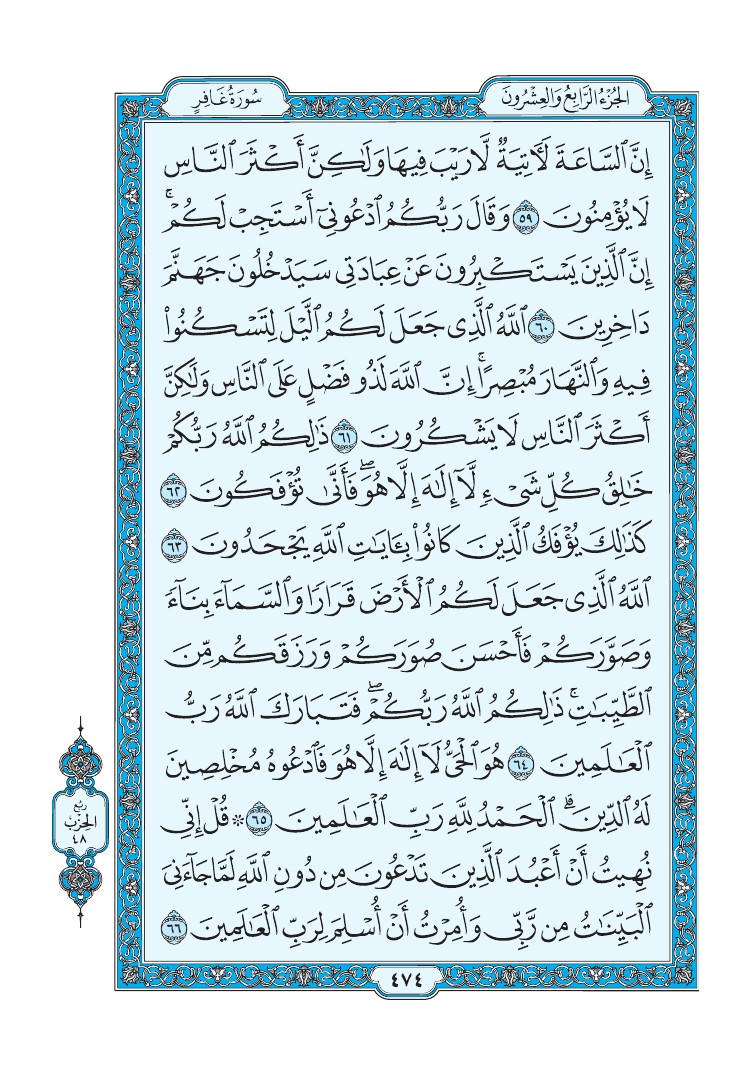 الجُزْءُ الرَّابِعُ وَالعِشْرُونَ
سُورَةُ غَافِرٍ
إِنَّ ٱلسَّاعَةَ لَأٓتِيَةٌ لَّا رَيۡبَ فِيهَا وَلَٰكِنَّ أَكۡثَرَ ٱلنَّاسِ
لَا يُؤۡمِنُونَ ٥٩ وَقَالَ رَبُّكُمُ ٱدۡعُونِيٓ أَسۡتَجِبۡ لَكُمۡۚ
إِنَّ ٱلَّذِينَ يَسۡتَكۡبِرُونَ عَنۡ عِبَادَتِي سَيَدۡخُلُونَ جَهَنَّمَ
دَاخِرِينَ ٦٠ ٱللَّهُ ٱلَّذِي جَعَلَ لَكُمُ ٱلَّيۡلَ لِتَسۡكُنُواْ
فِيهِ وَٱلنَّهَارَ مُبۡصِرًاۚ إِنَّ ٱللَّهَ لَذُو فَضۡلٍ عَلَى ٱلنَّاسِ وَلَٰكِنَّ
أَكۡثَرَ ٱلنَّاسِ لَا يَشۡكُرُونَ ٦١ ذَٰلِكُمُ ٱللَّهُ رَبُّكُمۡ
خَٰلِقُ كُلِّ شَيۡءٖ لَّآ إِلَٰهَ إِلَّا هُوَۖ فَأَنَّىٰ تُؤۡفَكُونَ ٦٢
كَذَٰلِكَ يُؤۡفَكُ ٱلَّذِينَ كَانُواْ بِـَٔايَٰتِ ٱللَّهِ يَجۡحَدُونَ ٦٣
ٱللَّهُ ٱلَّذِي جَعَلَ لَكُمُ ٱلۡأَرۡضَ قَرَارٗا وَٱلسَّمَآءَ بِنَآءٗ
وَصَوَّرَكُمۡ فَأَحۡسَنَ صُوَرَكُمۡ وَرَزَقَكُم مِّنَ
ٱلطَّيِّبَٰتِۚ ذَٰلِكُمُ ٱللَّهُ رَبُّكُمۡۖ فَتَبَارَكَ ٱللَّهُ رَبُّ
ٱلۡعَٰلَمِينَ ٦٤ هُوَ ٱلۡحَيُّ لَآ إِلَٰهَ إِلَّا هُوَ فَٱدۡعُوهُ مُخۡلِصِينَ
لَهُ ٱلدِّينَۗ ٱلۡحَمۡدُ لِلَّهِ رَبِّ ٱلۡعَٰلَمِينَ ٦٥ * قُلۡ إِنِّي
نُهِيتُ أَنۡ أَعۡبُدَ ٱلَّذِينَ تَدۡعُونَ مِن دُونِ ٱللَّهِ لَمَّا جَآءَنِيَ
ٱلۡبَيِّنَٰتُ مِن رَّبِّي وَأُمِرۡتُ أَنۡ أُسۡلِمَ لِرَبِّ ٱلۡعَٰلَمِينَ ٦٦
رُبُع
الحِزْب
٤٨
٤٧٤